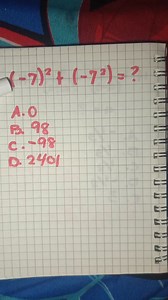 (-7)² + (-7²) = ?
A. 0
B. 98
C. -98
D. 2401